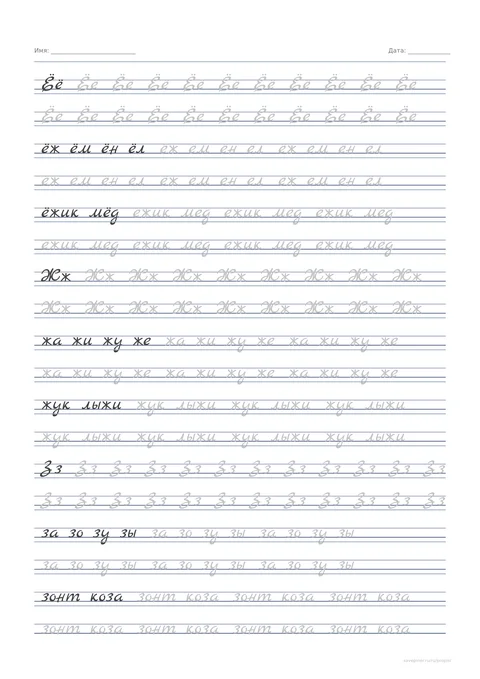 Имя: Дата:
Ёё Ёе Ёе Ёе Ёе Ёе Ёе Ёе Ёе Ёе Ёе
Ёе Ёе Ёе Ёе Ёе Ёе Ёе Ёе Ёе Ёе Ёе
ёж ём ён ёл еж ем ен ел еж ем ен ел
еж ем ен ел еж ем ен ел еж ем ен ел
ёжик мёд ежик мед ежик мед ежик мед
ежик мед ежик мед ежик мед ежик мед
Жж Жж Жж Жж Жж Жж Жж Жж Жж
Жж Жж Жж Жж Жж Жж Жж Жж Жж
жа жи жу же жа жи жу же жа жи жу же
жа жи жу же жа жи жу же жа жи жу же
жук лыжи жук лыжи жук лыжи жук лыжи
жук лыжи жук лыжи жук лыжи жук лыжи
Зз Зз Зз Зз Зз Зз Зз Зз Зз Зз Зз Зз
Зз Зз Зз Зз Зз Зз Зз Зз Зз Зз Зз Зз
за зо зу зы за зо зу зы за зо зу зы
за зо зу зы за зо зу зы за зо зу зы
зонт коза зонт коза зонт коза зонт коза
зонт коза зонт коза зонт коза зонт коза